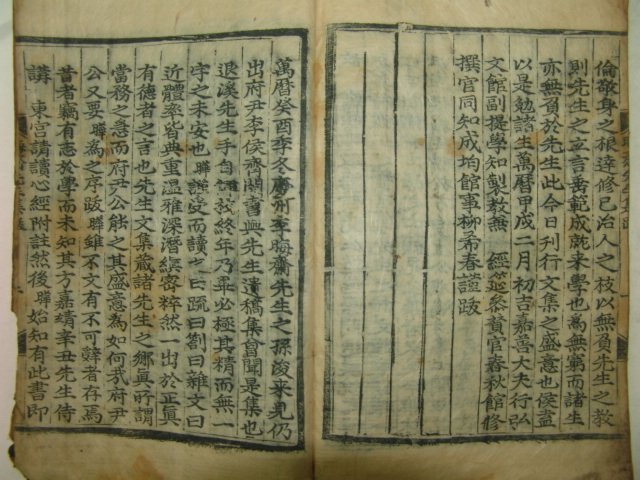 倫敬身之根達修己治人之枝以無負先生之教
則先生之立言垂範成就来學也爲無窮而諸生
亦無負於先生此今日刊行文集之盛意也侯盍
以是勉諸生萬曆甲戌二月初吉嘉善大夫行弘
文館副提學知製教兼 經筵叅賛官春秋館修
撰官同知成均館事柳希春謹跋
萬曆癸酉季冬慶州李晦齋先生之孫浚来見仍
出府尹李侯齊閔書與先生遺稿集曾聞是集也
退溪先生手自讎校終年乃畢必極其精而無一
字之未安也曄謹受而讀之曰疏曰劄曰雜文曰
近體率皆典重温雅深潛縝密粹然一出於正眞
有德者之言也先生文集藏諸先生之鄉眞所謂
當務之急而府尹公能之其盛意爲如何哉府尹
公又要曄爲之序跋曄雖不文有不可辭者存焉
昔者竊有志於學而未知其方嘉靖辛丑先生侍
講 東宮請讀心經附註然後曄始知有此書即